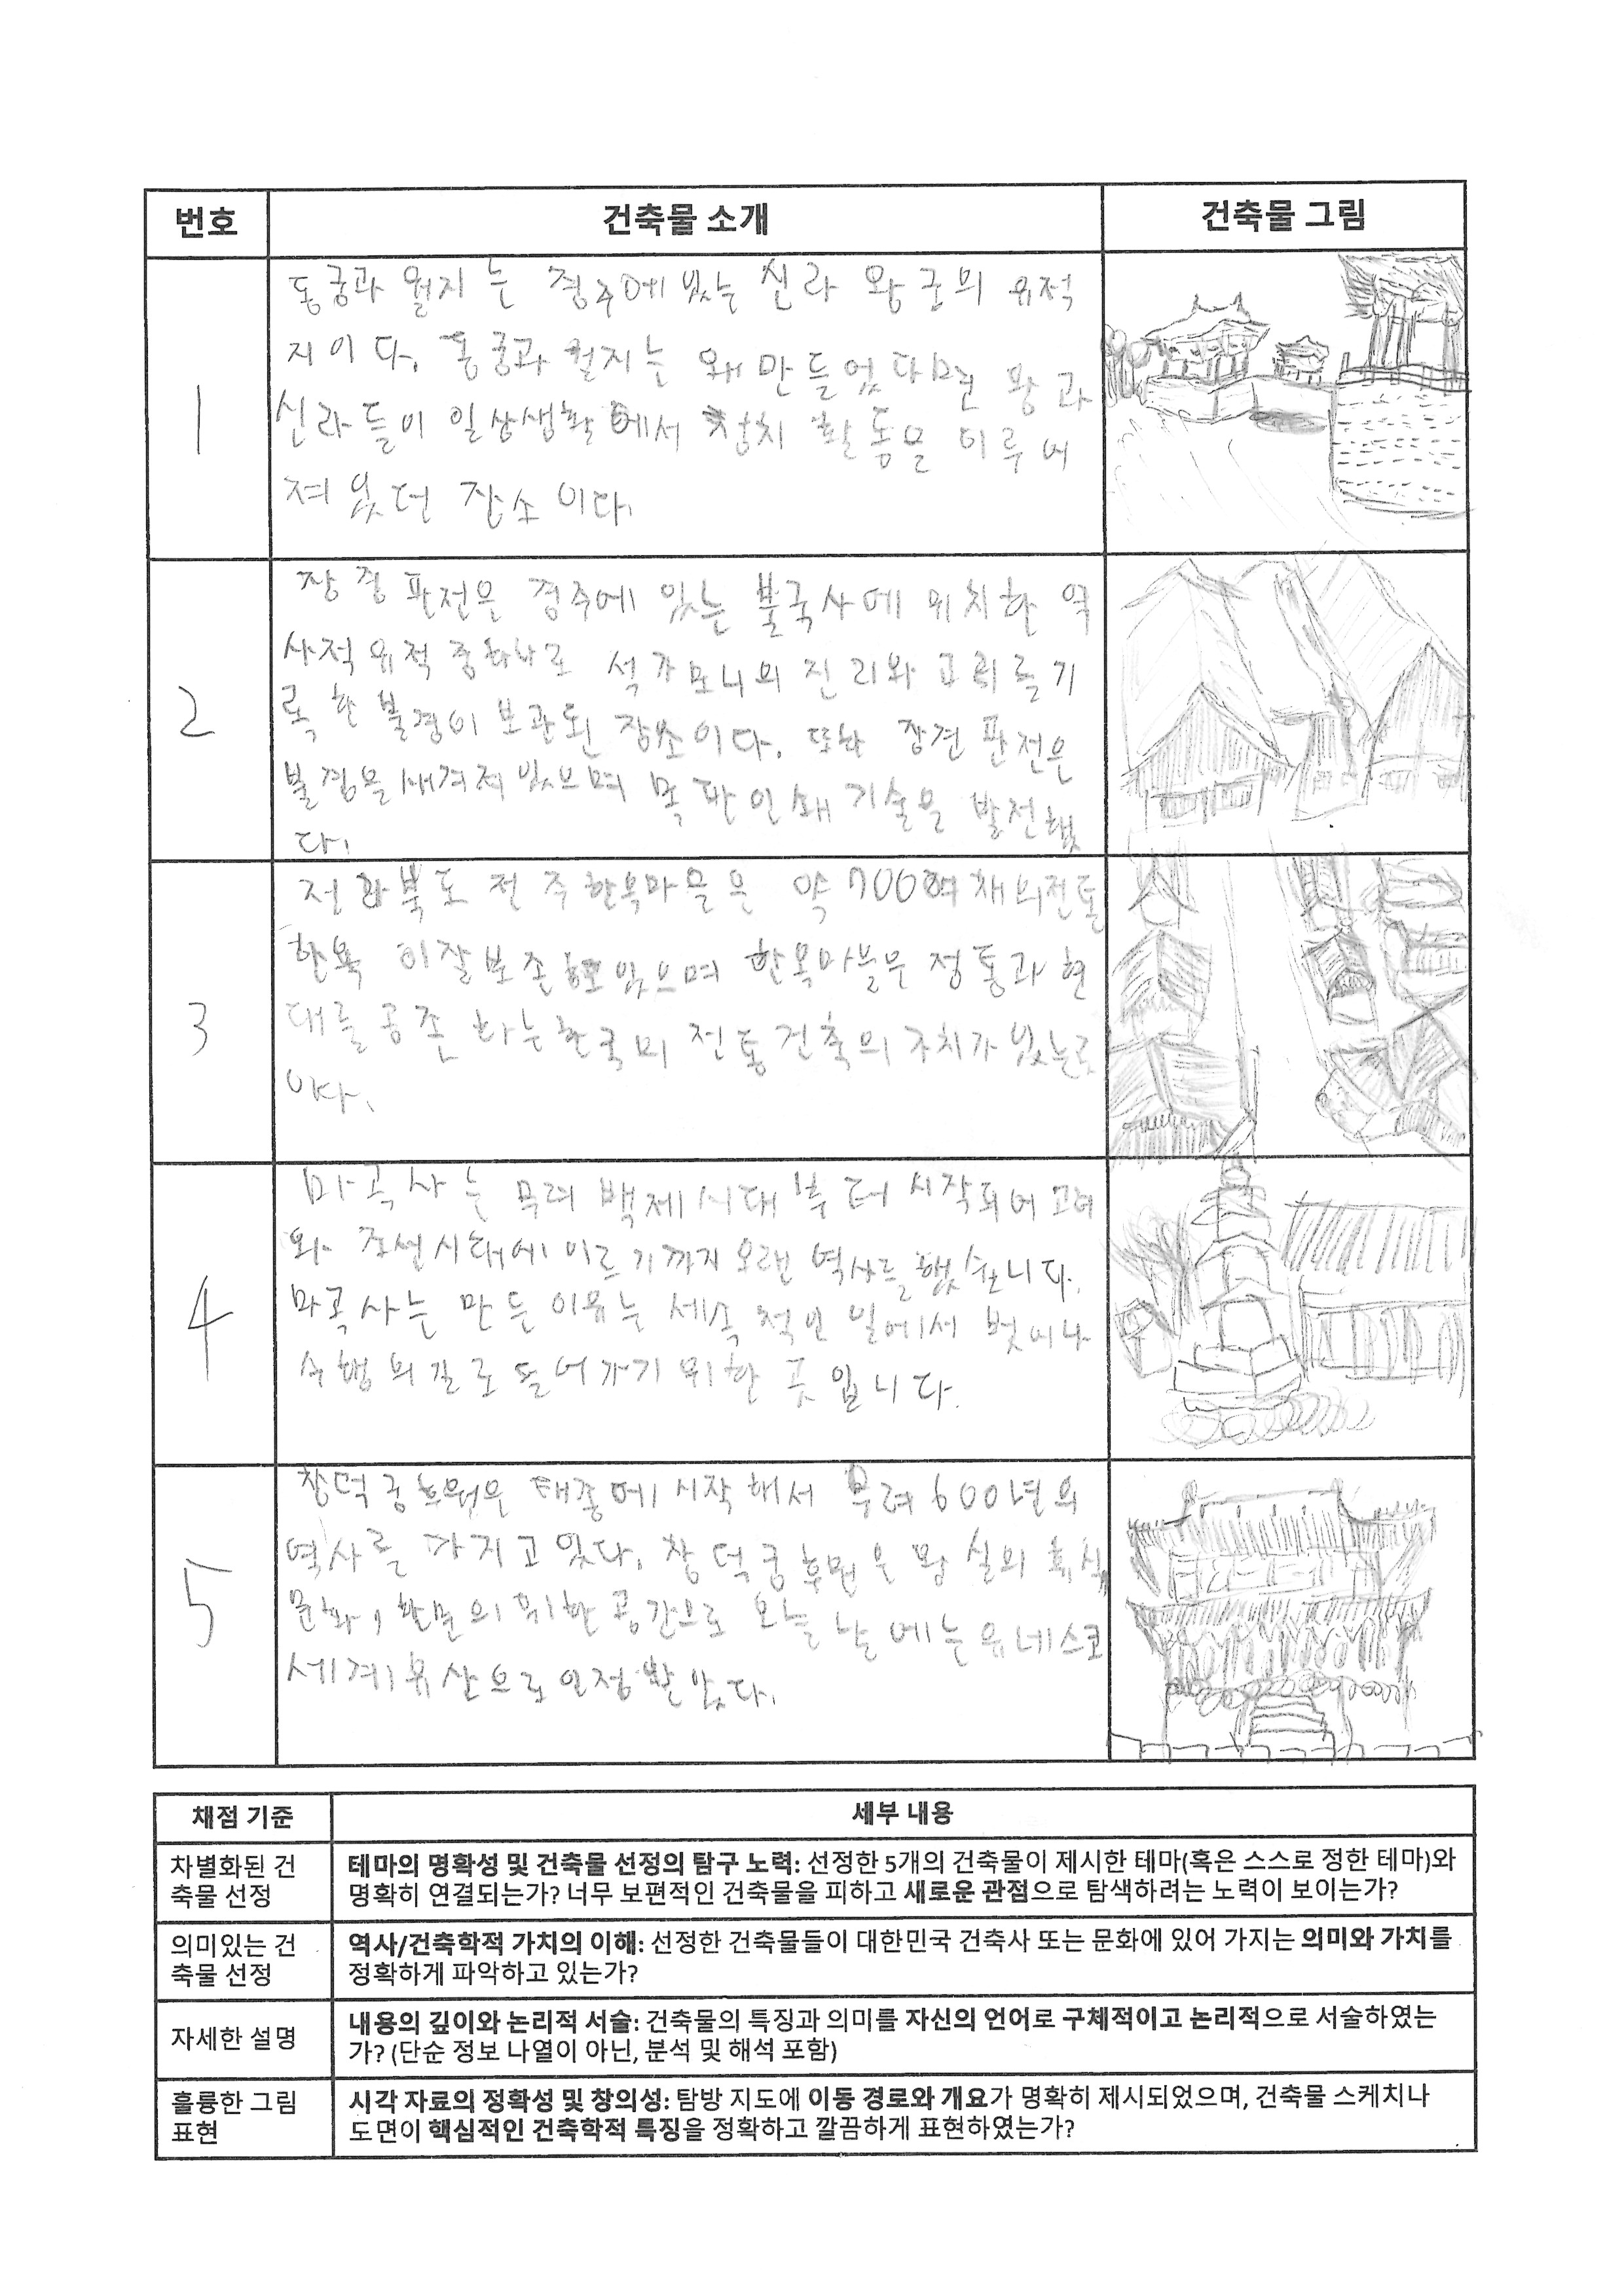 번호 건축물 소개 건축물 그림
1
동궁과 월지는 경주에 있는 신라 왕궁의 유적
지이다. 동궁과 월지는 왜 만들었다면 왕과
신라들이 일상생활에서 정치 활동을 이루어
져 있던 장소이다.
2
장경판전은 경주에 있는 불국사에 위치한 역
사적 유적 중 하나로 석가모니의 진리와 교리를 기
록한 불경이 보관된 장소이다. 또한 장견판전은
불경을 새겨져 있으며 목판 인쇄 기술을 발전했
다.
3
전라북도 전주한옥마을은 약 700여 채의 전통
한옥이 잘 보존 있으며 한옥마을은 정통과 현
대를 공존하는 한국의 전통 건축의 가치가 있는 곳
이다.
4
마곡사는 무려 백제시대부터 시작되어 고려
와 조선시대에 이르기까지 오랜 역사를 했습니다.
마곡사는 만든 이유는 세속적인 일에서 벗어나
수행의 길로 들어가기 위한 곳입니다.
5
창덕궁후원은 태종에 시작해서 무려 600년의
역사를 가지고 있다. 창덕궁후원은 왕실의 휴식,
문화, 학문의 위한 공간으로 오늘날에는 유네스코
세계유산으로 인정받았다.
채점 기준 세부 내용
차별화된 건
축물 선정
테마의 명확성 및 건축물 선정의 탐구 노력: 선정한 5개의 건축물이 제시한 테마(혹은 스스로 정한 테마)와
명확히 연결되는가? 너무 보편적인 건축물을 피하고 새로운 관점으로 탐색하려는 노력이 보이는가?
의미있는 건
축물 선정
역사/건축학적 가치의 이해: 선정한 건축물들이 대한민국 건축사 또는 문화에 있어 가지는 의미와 가치를
정확하게 파악하고 있는가?
자세한 설명
내용의 깊이와 논리적 서술: 건축물의 특징과 의미를 자신의 언어로 구체적이고 논리적으로 서술하였는
가? (단순 정보 나열이 아닌, 분석 및 해석 포함)
훌륭한 그림
표현
시각 자료의 정확성 및 창의성: 탐방 지도에 이동 경로와 개요가 명확히 제시되었으며, 건축물 스케치나
도면이 핵심적인 건축학적 특징을 정확하고 깔끔하게 표현하였는가?